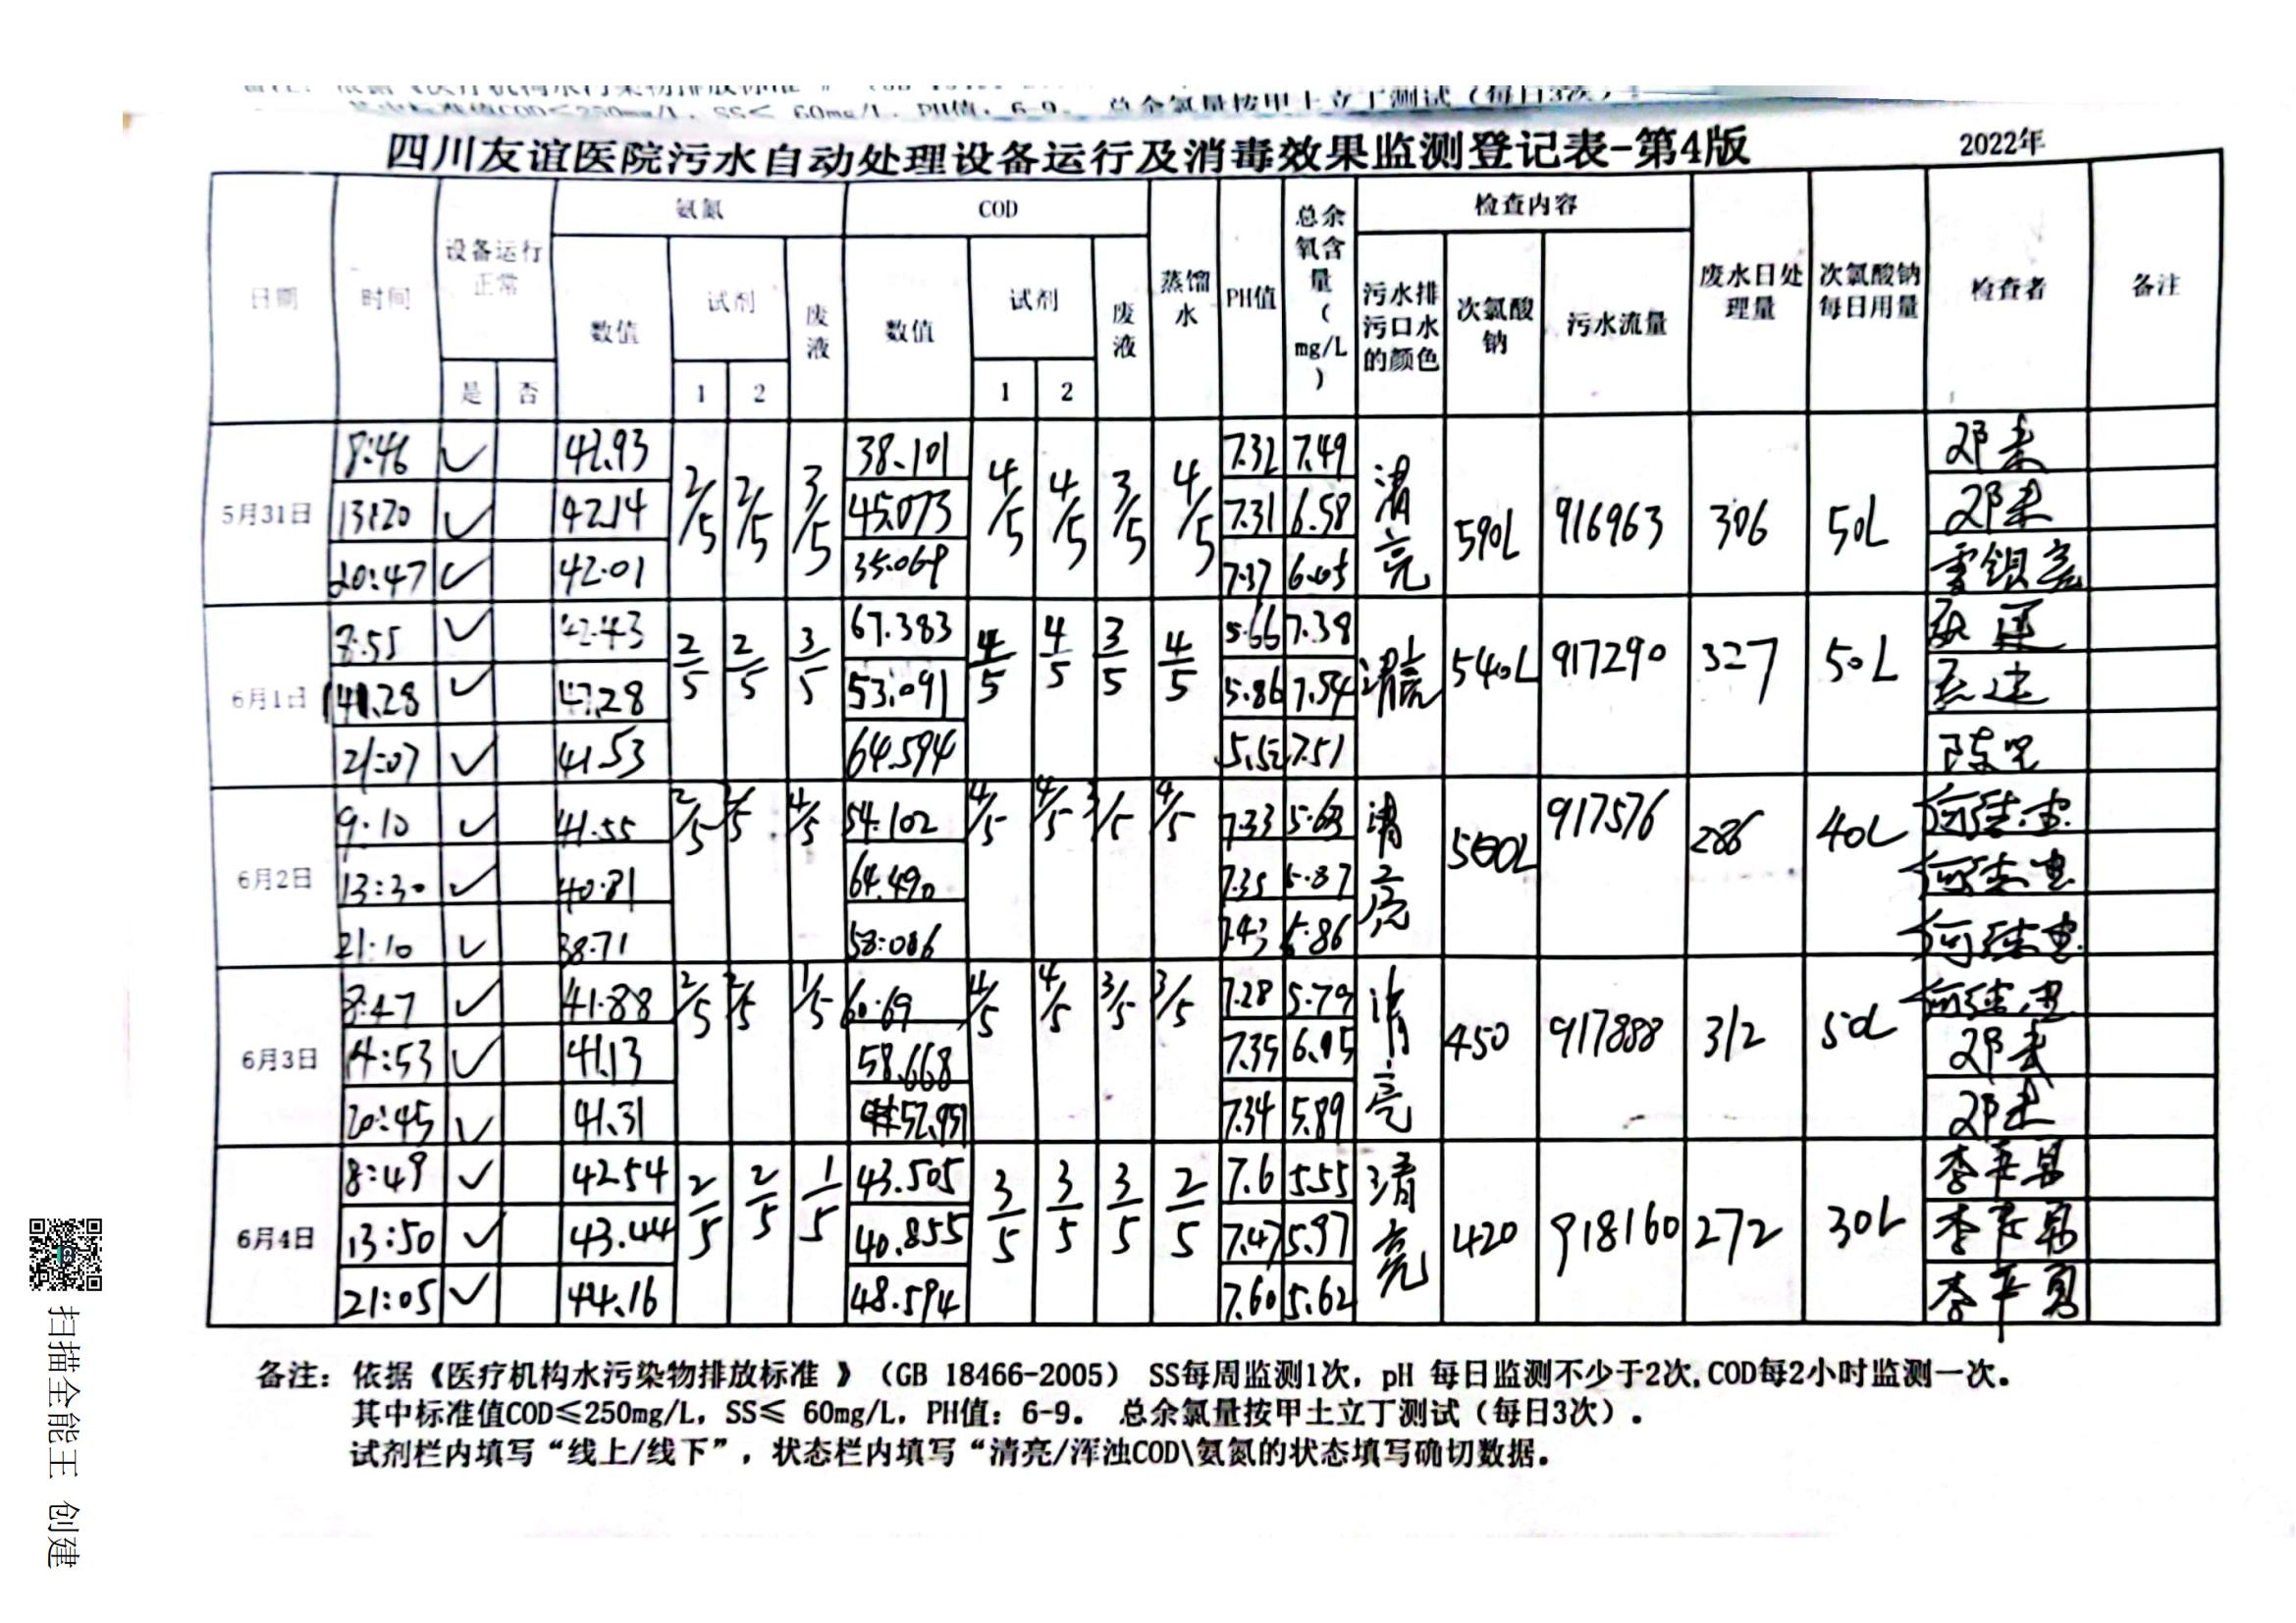 其中标准值COD≤250mg/L，SS≤ 60mg/L，PH值：6-9。 总余氯量按甲土立丁测试（每日3次）
四川友谊医院污水自动处理设备运行及消毒效果监测登记表-第4版 2022年
日期 时间 设备运行正常 氨氮 COD 蒸馏水 PH值 总余氧含量(mg/L) 检查内容 废水日处理量 次氯酸钠每日用量 检查者 备注
数值 试剂 废液 数值 试剂 废液 污水排污口水的颜色 次氯酸钠 污水流量
是 否 1 2 1 2
5月31日 8:46 ✓ 42.93 2/5 2/5 3/5 38.101 4/5 4/5 3/5 4/5 7.32 7.49 清亮 590L 916963 306 50L
13:20 ✓ 42.14 45.073 7.31 6.58
20:47 ✓ 42.01 35.069 7.37 6.05
6月1日 8:55 ✓ 42.43 2/5 2/5 3/5 67.383 4/5 4/5 3/5 4/5 5.66 7.38 清亮 540L 917290 327 50L
14:28 ✓ 53.091 5.86 7.54
21:07 ✓ 41.53 64.594 5.52 7.51
6月2日 9:10 ✓ 41.55 2/5 2/5 4/5 54.102 4/5 4/5 3/5 4/5 7.33 5.63 清亮 500L 917576 286 40L
13:30 ✓ 40.81 64.490 7.35 5.87
21:10 ✓ 38.71 58.086 7.43 5.86
6月3日 8:47 ✓ 41.88 2/5 2/5 1/5 60.69 4/5 4/5 3/5 3/5 7.28 5.79 清亮 450 917888 312 50L
14:53 ✓ 41.13 58.668 7.35 6.05
20:45 ✓ 41.31 52.951 7.34 5.89
6月4日 8:49 ✓ 42.54 2/5 2/5 1/5 43.505 3/5 3/5 3/5 2/5 7.6 5.55 清亮 420 918160 272 30L
13:50 ✓ 43.44 40.855 7.47 5.97
21:05 ✓ 44.16 48.594 7.60 5.62
备注：依据《医疗机构水污染物排放标准 》（GB 18466-2005） SS每周监测1次，pH 每日监测不少于2次,COD每2小时监测一次。
其中标准值COD≤250mg/L，SS≤ 60mg/L，PH值：6-9。 总余氯量按甲土立丁测试（每日3次）.
试剂栏内填写“线上/线下”，状态栏内填写“清亮/浑浊COD\氨氮的状态填写确切数据。
扫描全能王 创建